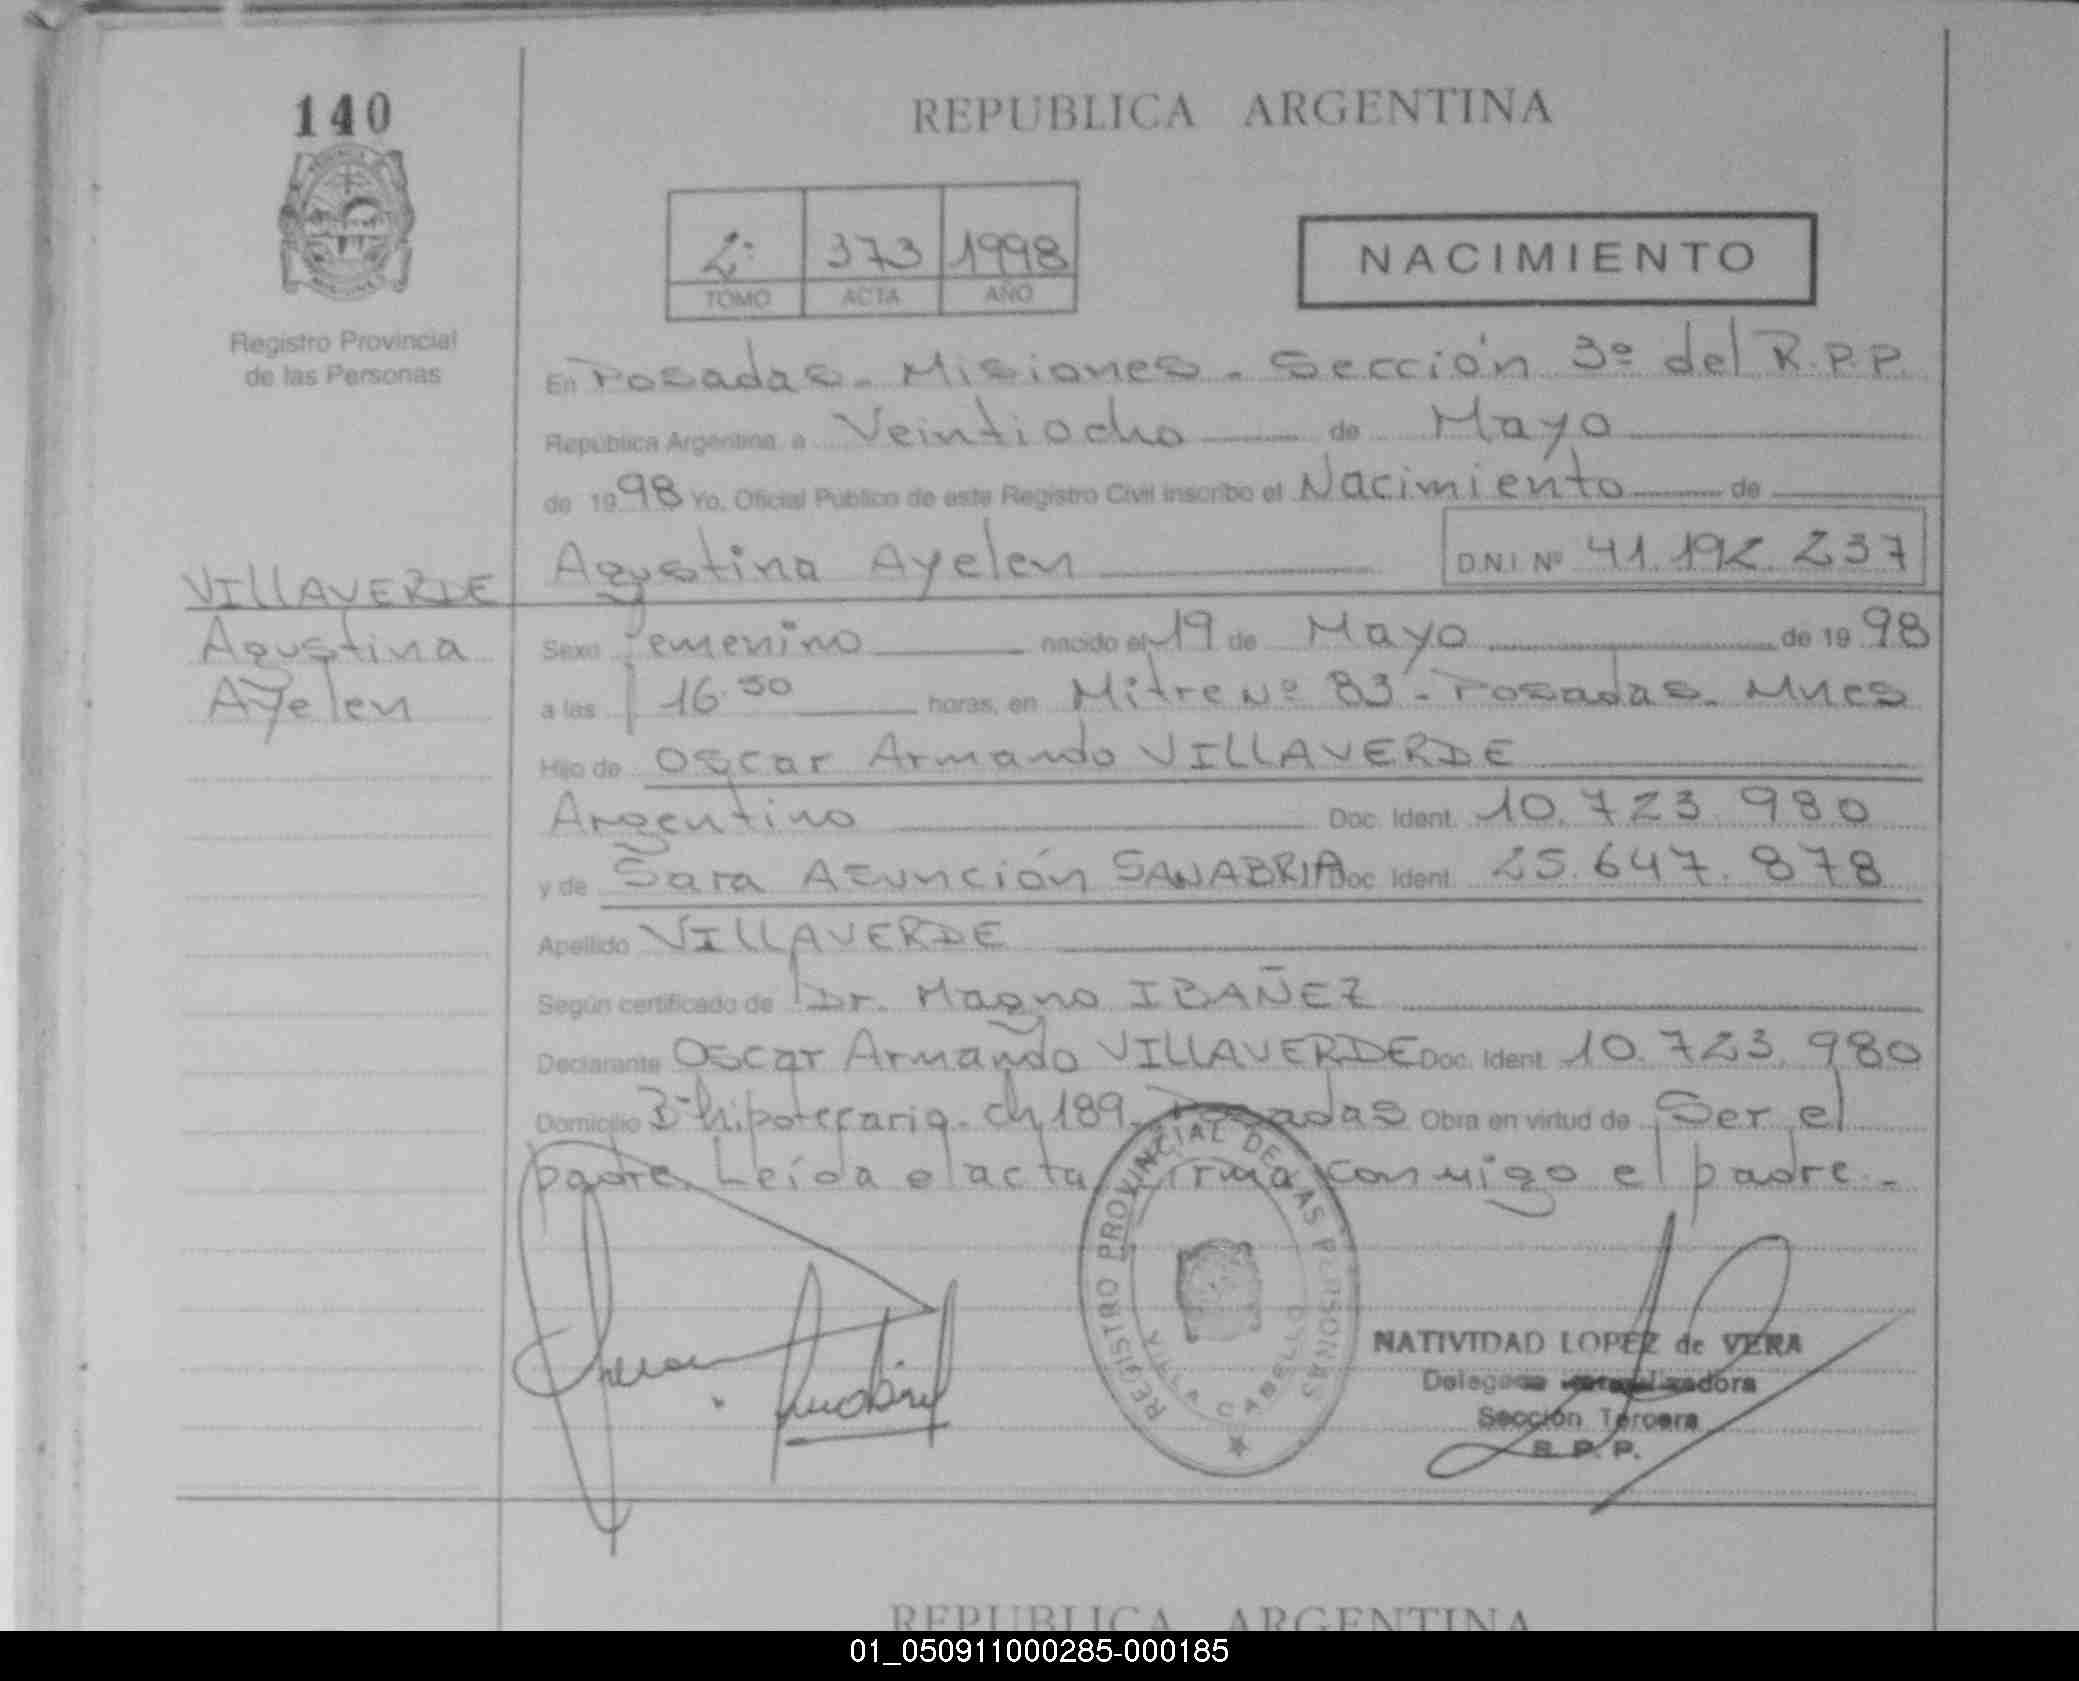 140
REPUBLICA ARGENTINA
2º 373 1998
TOMO ACTA AÑO
NACIMIENTO
Registro Provincial
de las Personas
En Posadas - Misiones - Sección 3º del R.P.P.
República Argentina a Veintiocho de Mayo
de 1998 Yo, Oficial Público de este Registro Civil inscribo el Nacimiento de
Agustina Ayelen D.N.I Nº 41.192.237
VILLAVERDE
Agustina
Ayelen
Sexo Femenino nacido el 19 de Mayo de 1998
a las 16.30 horas, en Mitre Nº 83 - Posadas - Mnes
Hijo de Oscar Armando VILLAVERDE
Argentino Doc. Ident. 10.723.980
y de Sara Asunción SANABRIA Doc. Ident. 25.647.878
Apellido VILLAVERDE
Según certificado de Dr. Magno IBAÑEZ
Declarante Oscar Armando VILLAVERDE Doc. Ident. 10.723.980
Domicilio Bº hipotecario - ch 189 - Posadas Obra en virtud de Ser el
padre. Leída el acta firma conmigo el padre.-
REGISTRO PROVINCIAL DE LAS PERSONAS
VILLA CABELLO
NATIVIDAD LOPEZ de VERA
Delegada
Sección Tercera
R. P. P.
REPUBLICA ARGENTINA
01_050911000285-000185